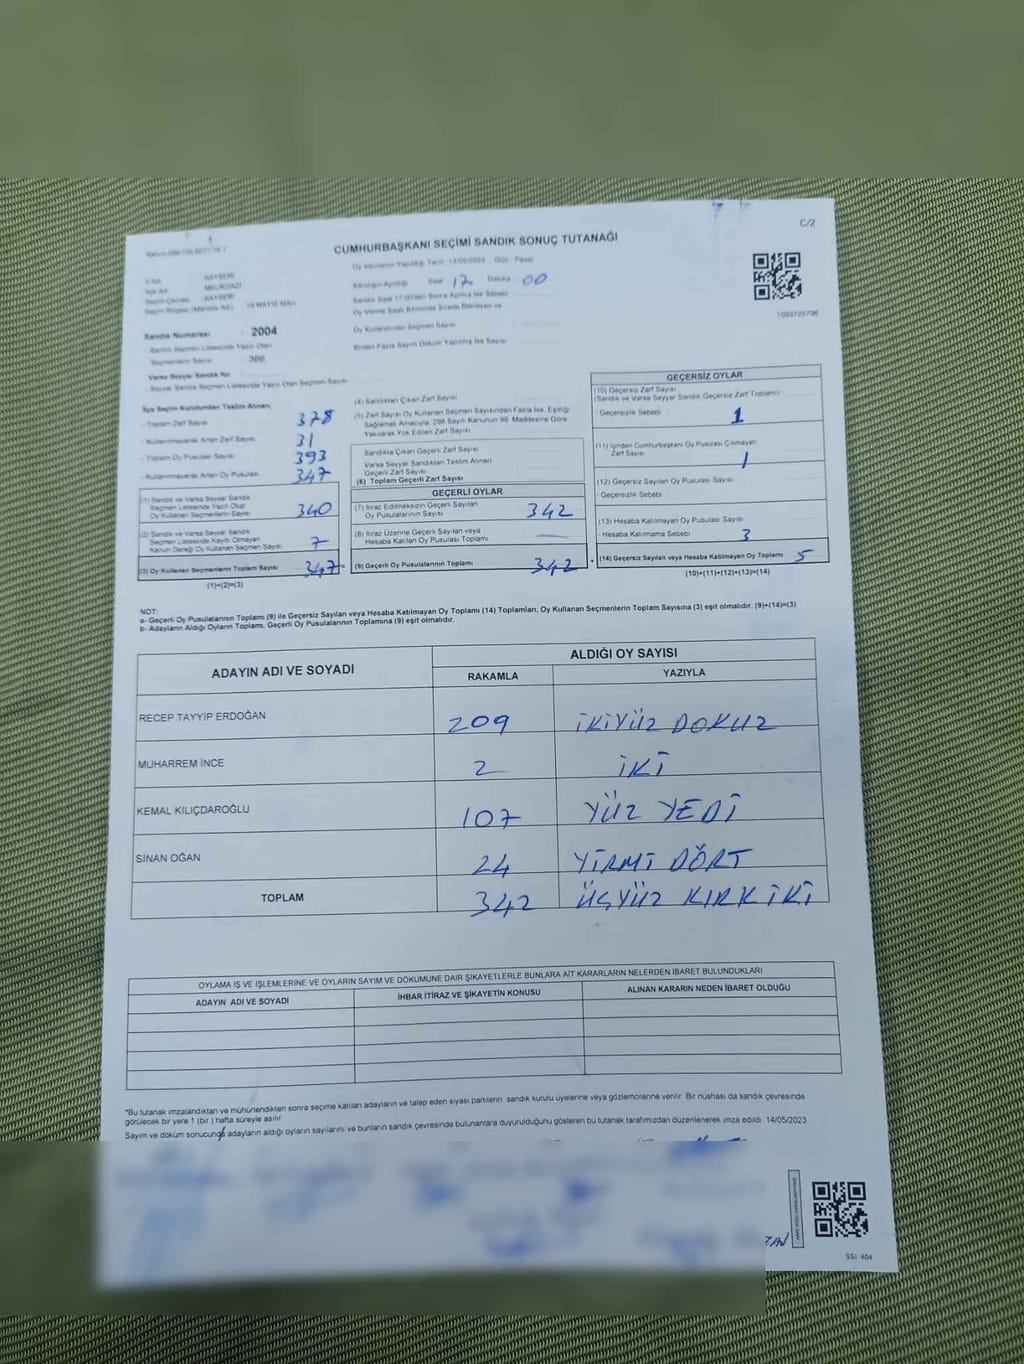 C/2
CUMHURBAŞKANI SEÇİMİ SANDIK SONUÇ TUTANAĞI
Oy Vermenin Yapıldığı Tarih 14/05/2023 Gün Pazar
Sandığın Açıldığı Saat 17 Dakika 00
Sandık Saat 17:00'den Sonra Açılmış İse Sebebi
1093725796
KAYSERİ
MELİKGAZİ
KAYSERİ
19 MAYIS MAH.
Sandık Numarası : 2004
Sandık Seçmen Listesinde Yazılı Olan
Seçmenlerin Sayısı : 366
Varsa Seyyar Sandık No
Seyyar Sandık Seçmen Listesinde Yazılı Olan Seçmen Sayısı
İlçe Seçim Kurulundan Teslim Alınan;
- Toplam Zarf Sayısı 378
- Kullanılmayarak Artan Zarf Sayısı 31
- Toplam Oy Pusulası Sayısı 393
- Kullanılmayarak Artan Oy Pusulası 347
(1) Sandık ve Varsa Seyyar Sandık
Seçmen Listesinde Yazılı Olup
Oy Kullanan Seçmenlerin Sayısı 340
(2) Sandık ve Varsa Seyyar Sandık
Seçmen Listesinde Kayıtlı Olmayan
Kanun Gereği Oy Kullanan Seçmen Sayısı 7
(3) Oy Kullanan Seçmenlerin Toplam Sayısı 347
(1)+(2)=(3)
(4) Sandıktan Çıkan Zarf Sayısı
(5) Zarf Sayısı Oy Kullanan Seçmen Sayısından Fazla İse, Eşitliği
Sağlamak Amacıyla, 298 Sayılı Kanunun 98. Maddesine Göre
Yakılarak Yok Edilen Zarf Sayısı
Sandıkta Çıkan Geçerli Zarf Sayısı
Varsa Seyyar Sandıktan Teslim Alınan
Geçerli Zarf Sayısı
(6) Toplam Geçerli Zarf Sayısı
GEÇERLİ OYLAR
(7) İtiraz Edilmeksizin Geçerli Sayılan
Oy Pusulalarının Sayısı 342
(8) İtiraz Üzerine Geçerli Sayılan veya
Hesaba Katılan Oy Pusulası Toplamı —
(9) Geçerli Oy Pusulalarının Toplamı 342
GEÇERSİZ OYLAR
(10) Geçersiz Zarf Sayısı
(Sandık ve Varsa Seyyar Sandık Geçersiz Zarf Toplamı)
- Geçersizlik Sebebi 1
(11) İçinden Cumhurbaşkanı Oy Pusulası Çıkmayan
Zarf Sayısı 1
(12) Geçersiz Sayılan Oy Pusulası Sayısı
- Geçersizlik Sebebi
(13) Hesaba Katılmayan Oy Pusulası Sayısı
- Hesaba Katılmama Sebebi 3
(14) Geçersiz Sayılan veya Hesaba Katılmayan Oy Toplamı 5
(10)+(11)+(12)+(13)=(14)
NOT:
a- Geçerli Oy Pusulalarının Toplamı (9) ile Geçersiz Sayılan veya Hesaba Katılmayan Oy Toplamı (14) Toplamları, Oy Kullanan Seçmenlerin Toplam Sayısına (3) eşit olmalıdır. (9)+(14)=(3)
b- Adayların Aldığı Oyların Toplamı, Geçerli Oy Pusulalarının Toplamına (9) eşit olmalıdır.
ADAYIN ADI VE SOYADI
ALDIĞI OY SAYISI
RAKAMLA YAZIYLA
RECEP TAYYİP ERDOĞAN 209 İKİYÜZ DOKUZ
MUHARREM İNCE 2 İKİ
KEMAL KILIÇDAROĞLU 107 YÜZ YEDİ
SİNAN OĞAN 24 YİRMİ DÖRT
TOPLAM 342 ÜÇYÜZ KIRK İKİ
OYLAMA İŞ VE İŞLEMLERİNE VE OYLARIN SAYIM VE DÖKÜMÜNE DAİR ŞİKAYETLERLE BUNLARA AİT KARARLARIN NELERDEN İBARET BULUNDUKLARI
ADAYIN ADI VE SOYADI İHBAR İTİRAZ VE ŞİKAYETİN KONUSU ALINAN KARARIN NEDEN İBARET OLDUĞU
*Bu tutanak imzalandıktan ve mühürlendikten sonra seçime katılan adayların ve talep eden siyasi partilerin sandık kurulu üyelerine veya gözlemcilerine verilir. Bir nüshası da sandık çevresinde
görülecek bir yere 1 (bir) hafta süreyle asılır.
Sayım ve döküm sonucunda adayların aldığı oyların sayılarını ve bunların sandık çevresinde bulunanlara duyurulduğunu gösteren bu tutanak tarafımızdan düzenlenerek imza edildi. 14/05/2023
SSİ 404